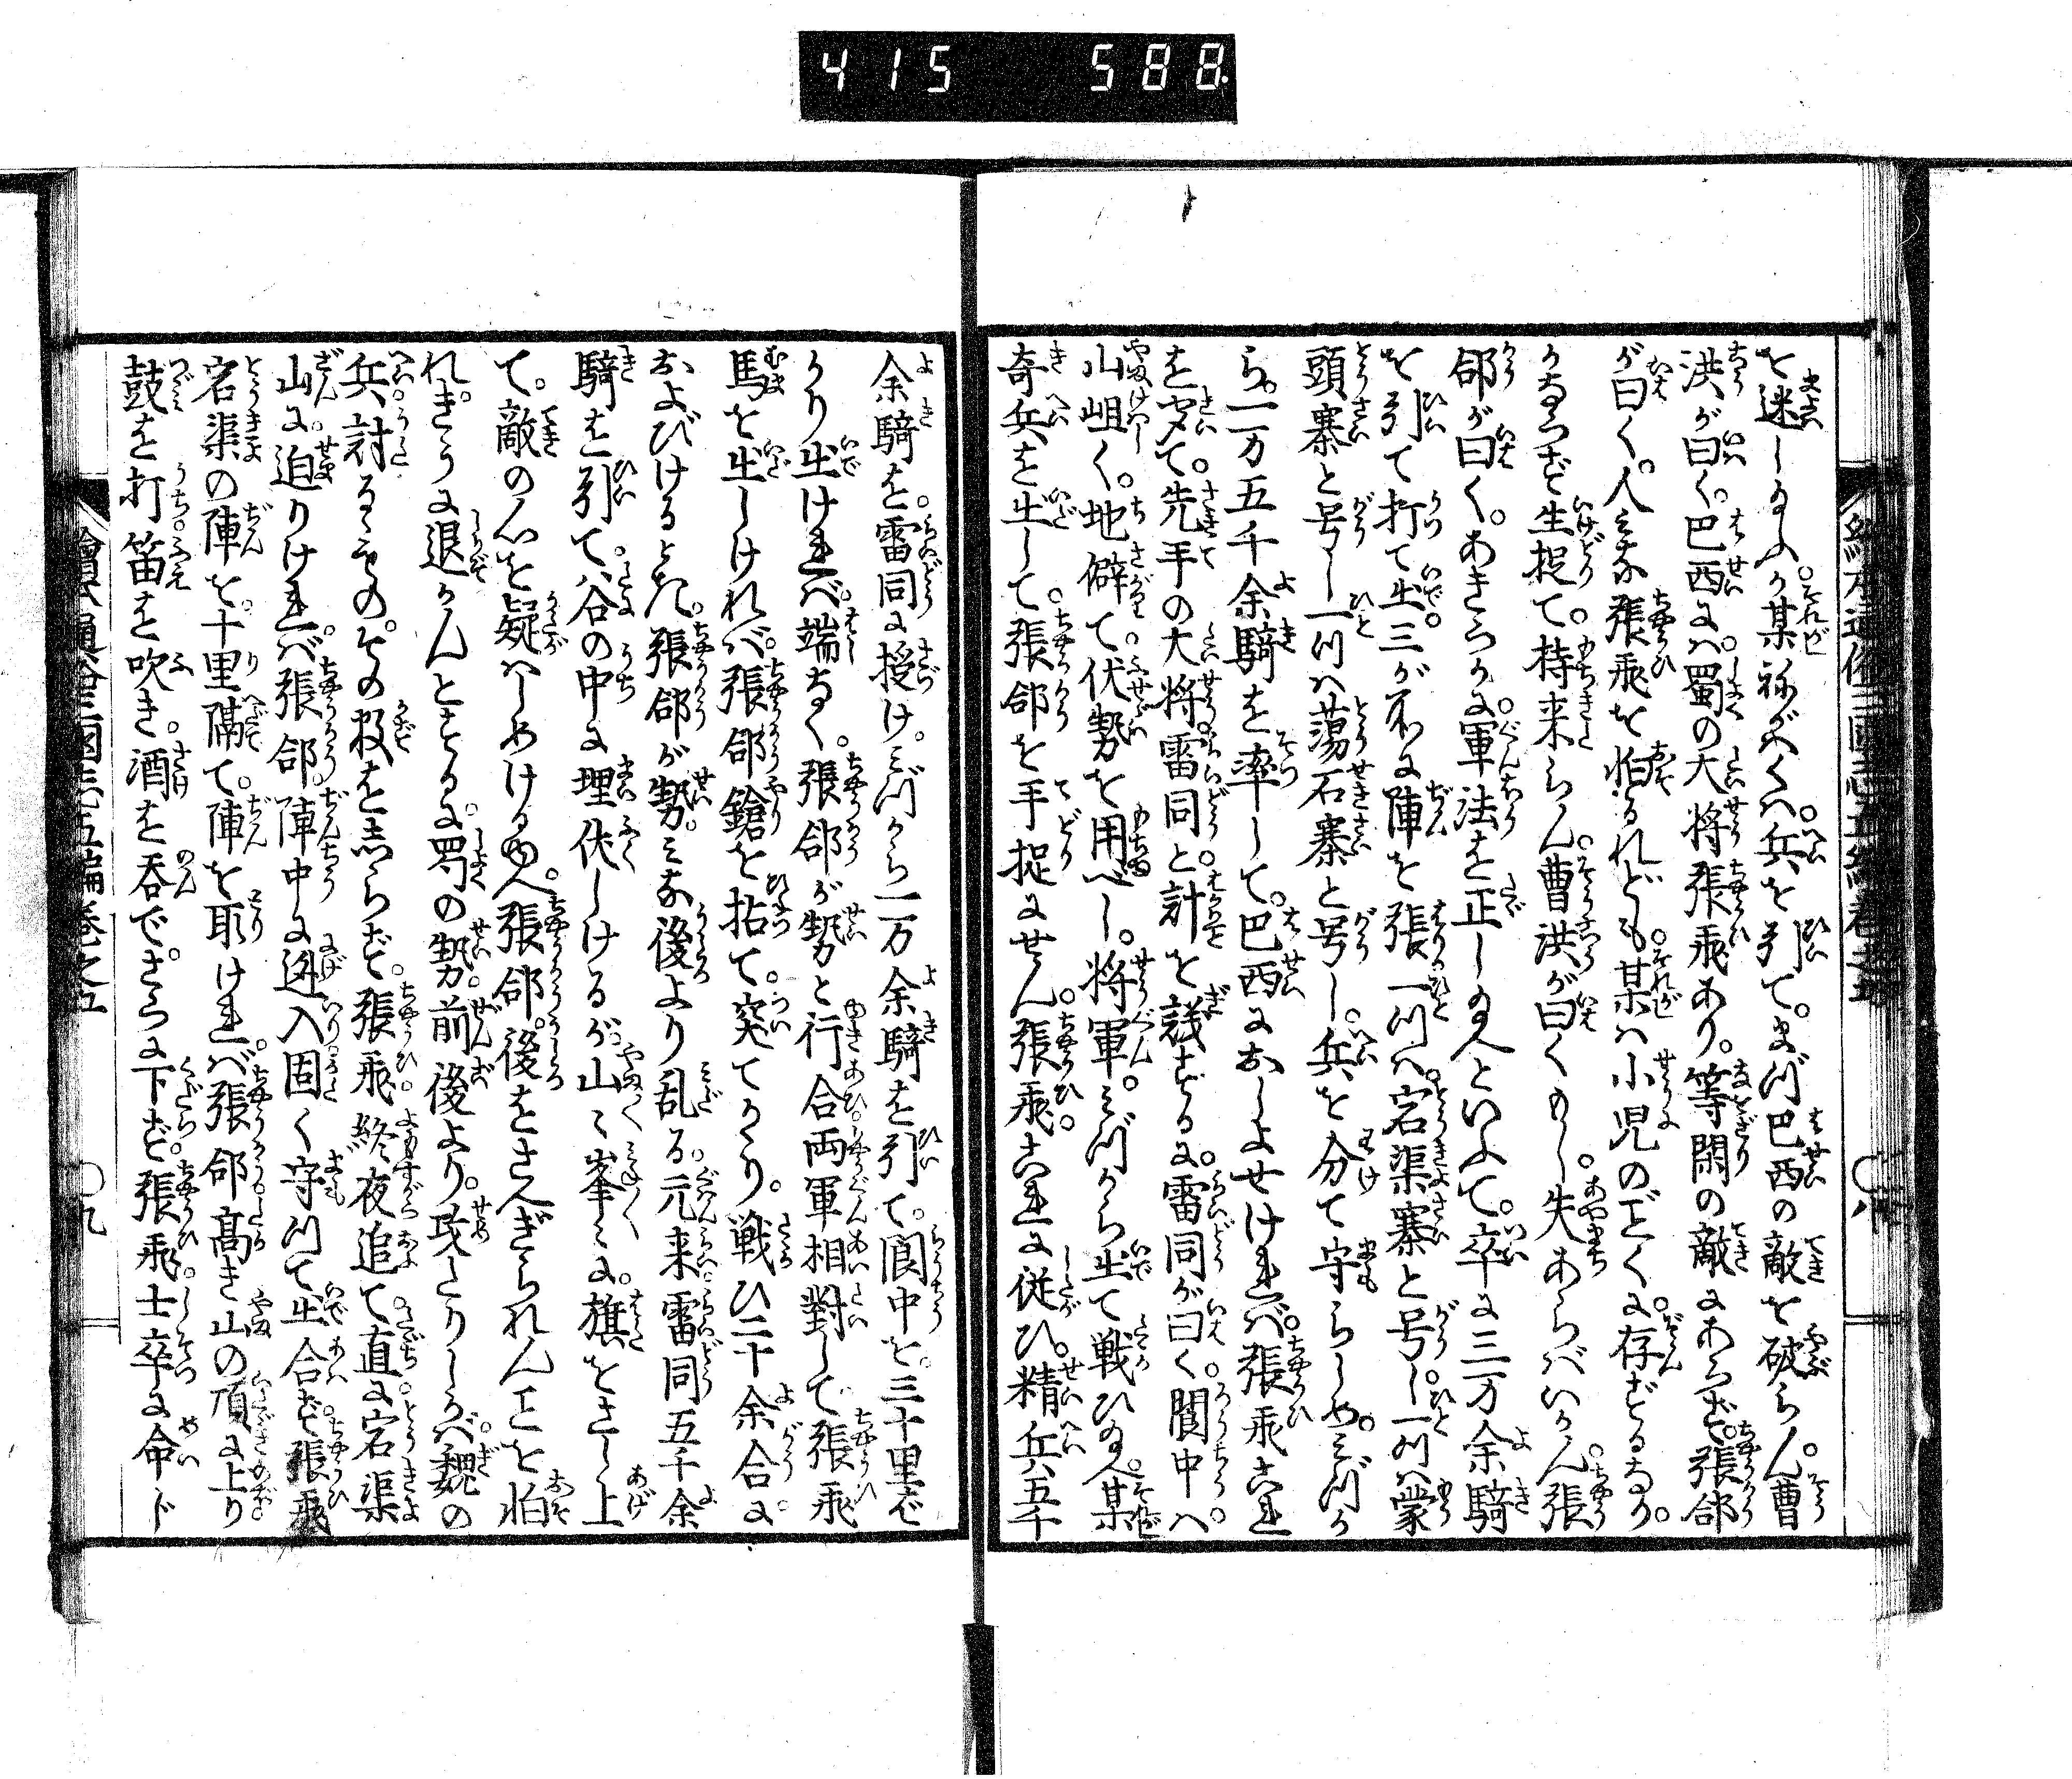 415 588.
を迷し給ふか某ねがハくハ兵を引て。まづ巴西の敵を破らん。曹
洪が曰く。巴西にハ蜀の大将張飛あり。等閑の敵にあらず。張郃
が曰く。人みな張飛を怕るれども。某ハ小児のごとくに存ずるなり。
かならず生捉て。持来らん。曹洪が曰くもし失あらバいかん。張
郃が曰く。あきらかに軍法を正し給へといふて。卒に三万余騎
を引て打て出。三が所に陣を張。一ツハ。宕渠寨と号し。一ツハ蒙
頭寨と号し一ツハ蕩石寨と号し。兵を分て守らしめ。ミづか
ら。一万五千余騎を率して。巴西におしよせけれバ。張飛これ
を聞て。先手の大将雷同と計を議するに。雷同が曰く。閬中ハ。
山岨く。地僻て伏勢を用べし。将軍。ミづから出て戦ひ給へ。某
奇兵を出して。張郃を手捉にせん。張飛。これに従ひ。精兵五千
余騎を。雷同に授け。ミづから一万余騎を引て。閬中を。三十里ば
かり出けれバ。端なく。張郃が勢と行合。両軍相對して張飛
馬を出しけれバ。張郃鎗を拈て。突てかゝり。戦ひ二十余合に
およびけるとき。張郃が勢。ミな後より乱る。元来雷同五千余
騎を引て。谷の中に埋伏しけるが。山〻峯〻に。旗をさし上
て。敵の心を疑ハしめける故。張郃。後をさへぎられんことを怕
れ。きうに退かんとするに。蜀の勢。前後より。攻たりしかバ。魏の
兵。討るゝもの。その数をしらず。張飛。終夜追て。直に宕渠
山に。迫りけれバ。張郃。陣中に逃入固く守ツて出合ず。張飛
宕渠の陣を。十里隔て。陣を取けれバ。張郃。高き山の頂に上り
鼓を打笛を吹き。酒を呑で。さらに下ず。張飛。士卒に命ド
繪本通俗三國志五編巻之五
〇八
繪本通俗三國志五編巻之五
〇九